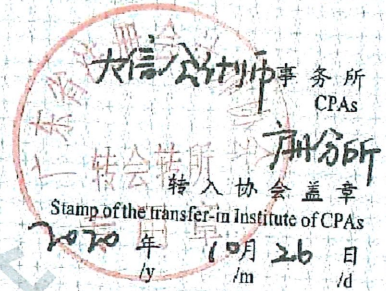 大信会计师事务所
CPAs
广州分所
转入协会盖章
Stamp of the transfer-in Institute of CPAs
2020 年 10月 26 日
/y /m /d
广东省注册会计师协会
转会转所
专用章